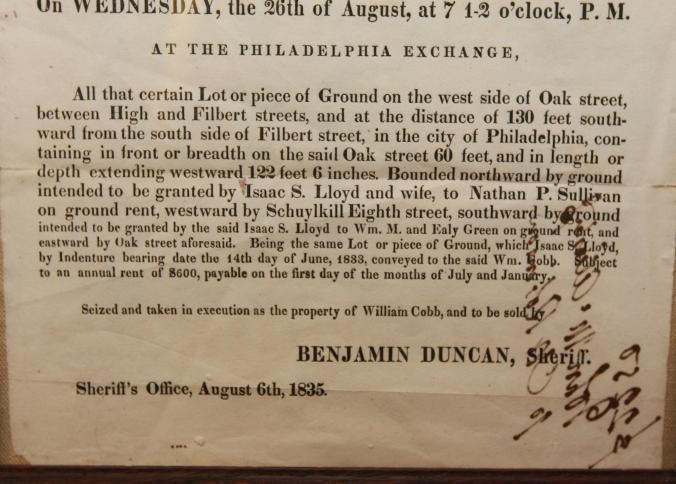 On WEDNESDAY, the 26th of August, at 7 1-2 o'clock, P. M.
AT THE PHILADELPHIA EXCHANGE,
All that certain Lot or piece of Ground on the west side of Oak street,
between High and Filbert streets, and at the distance of 130 feet south-
ward from the south side of Filbert street, in the city of Philadelphia, con-
taining in front or breadth on the said Oak street 60 feet, and in length or
depth extending westward 122 feet 6 inches. Bounded northward by ground
intended to be granted by Isaac S. Lloyd and wife, to Nathan P. Sullivan
on ground rent, westward by Schuylkill Eighth street, southward by ground
intended to be granted by the said Isaac S. Lloyd to Wm. M. and Ealy Green on ground rent, and
eastward by Oak street aforesaid. Being the same Lot or piece of Ground, which Isaac S. Lloyd,
by Indenture bearing date the 14th day of June, 1833, conveyed to the said Wm. Cobb. Subject
to an annual rent of $600, payable on the first day of the months of July and January.
Seized and taken in execution as the property of William Cobb, and to be sold by
BENJAMIN DUNCAN, Sheriff.
Sheriff's Office, August 6th, 1835.